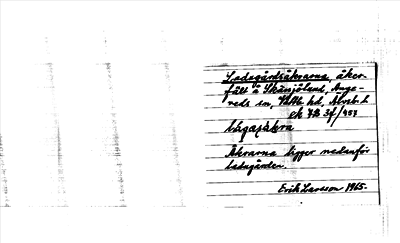 Ladugårdsåkrarna, åker-
fält på Skänsjölund, Ange-
reds sn, Vättle hd, Älvsb. l.
ek 7B 3f/957
lågasåkra
Åkrarna ligger nedanför
ladugården.
Erik Larsson 1965.